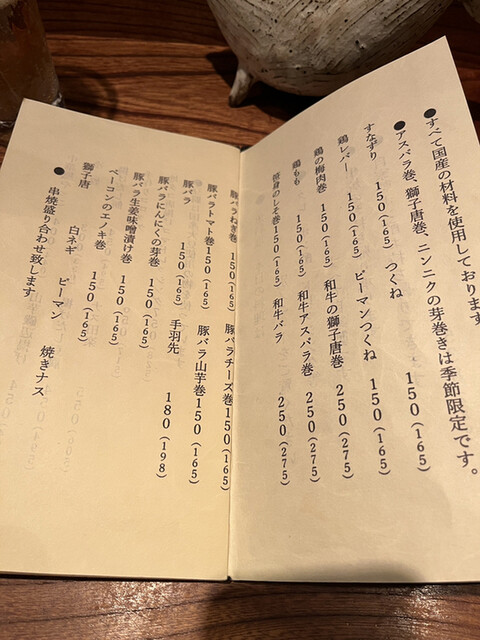 ●すべて国産の材料を使用しております
●アスパラ巻、獅子唐巻、ニンニクの芽巻きは季節限定です。
すなずり 150(165) つくね 150(165)
鶏レバー 150(165) ピーマンつくね 150(165)
鶏の梅肉巻 150(165) 和牛の獅子唐巻 250(275)
鶏もも 150(165) 和牛アスパラ巻 250(275)
笹身のしそ巻150(165) 和牛バラ 250(275)
豚バラねぎ巻 150(165) 豚バラチーズ巻150(165)
豚バラトマト巻150(165) 豚バラ山芋巻150(165)
豚バラ 150(165) 手羽先 180(198)
豚バラにんにくの芽巻 150(165)
豚バラ生姜味噌漬け巻 150(165)
ベーコンのエノキ巻 150(165)
獅子唐 白ネギ ピーマン 焼きナス
●串焼盛り合わせ致します